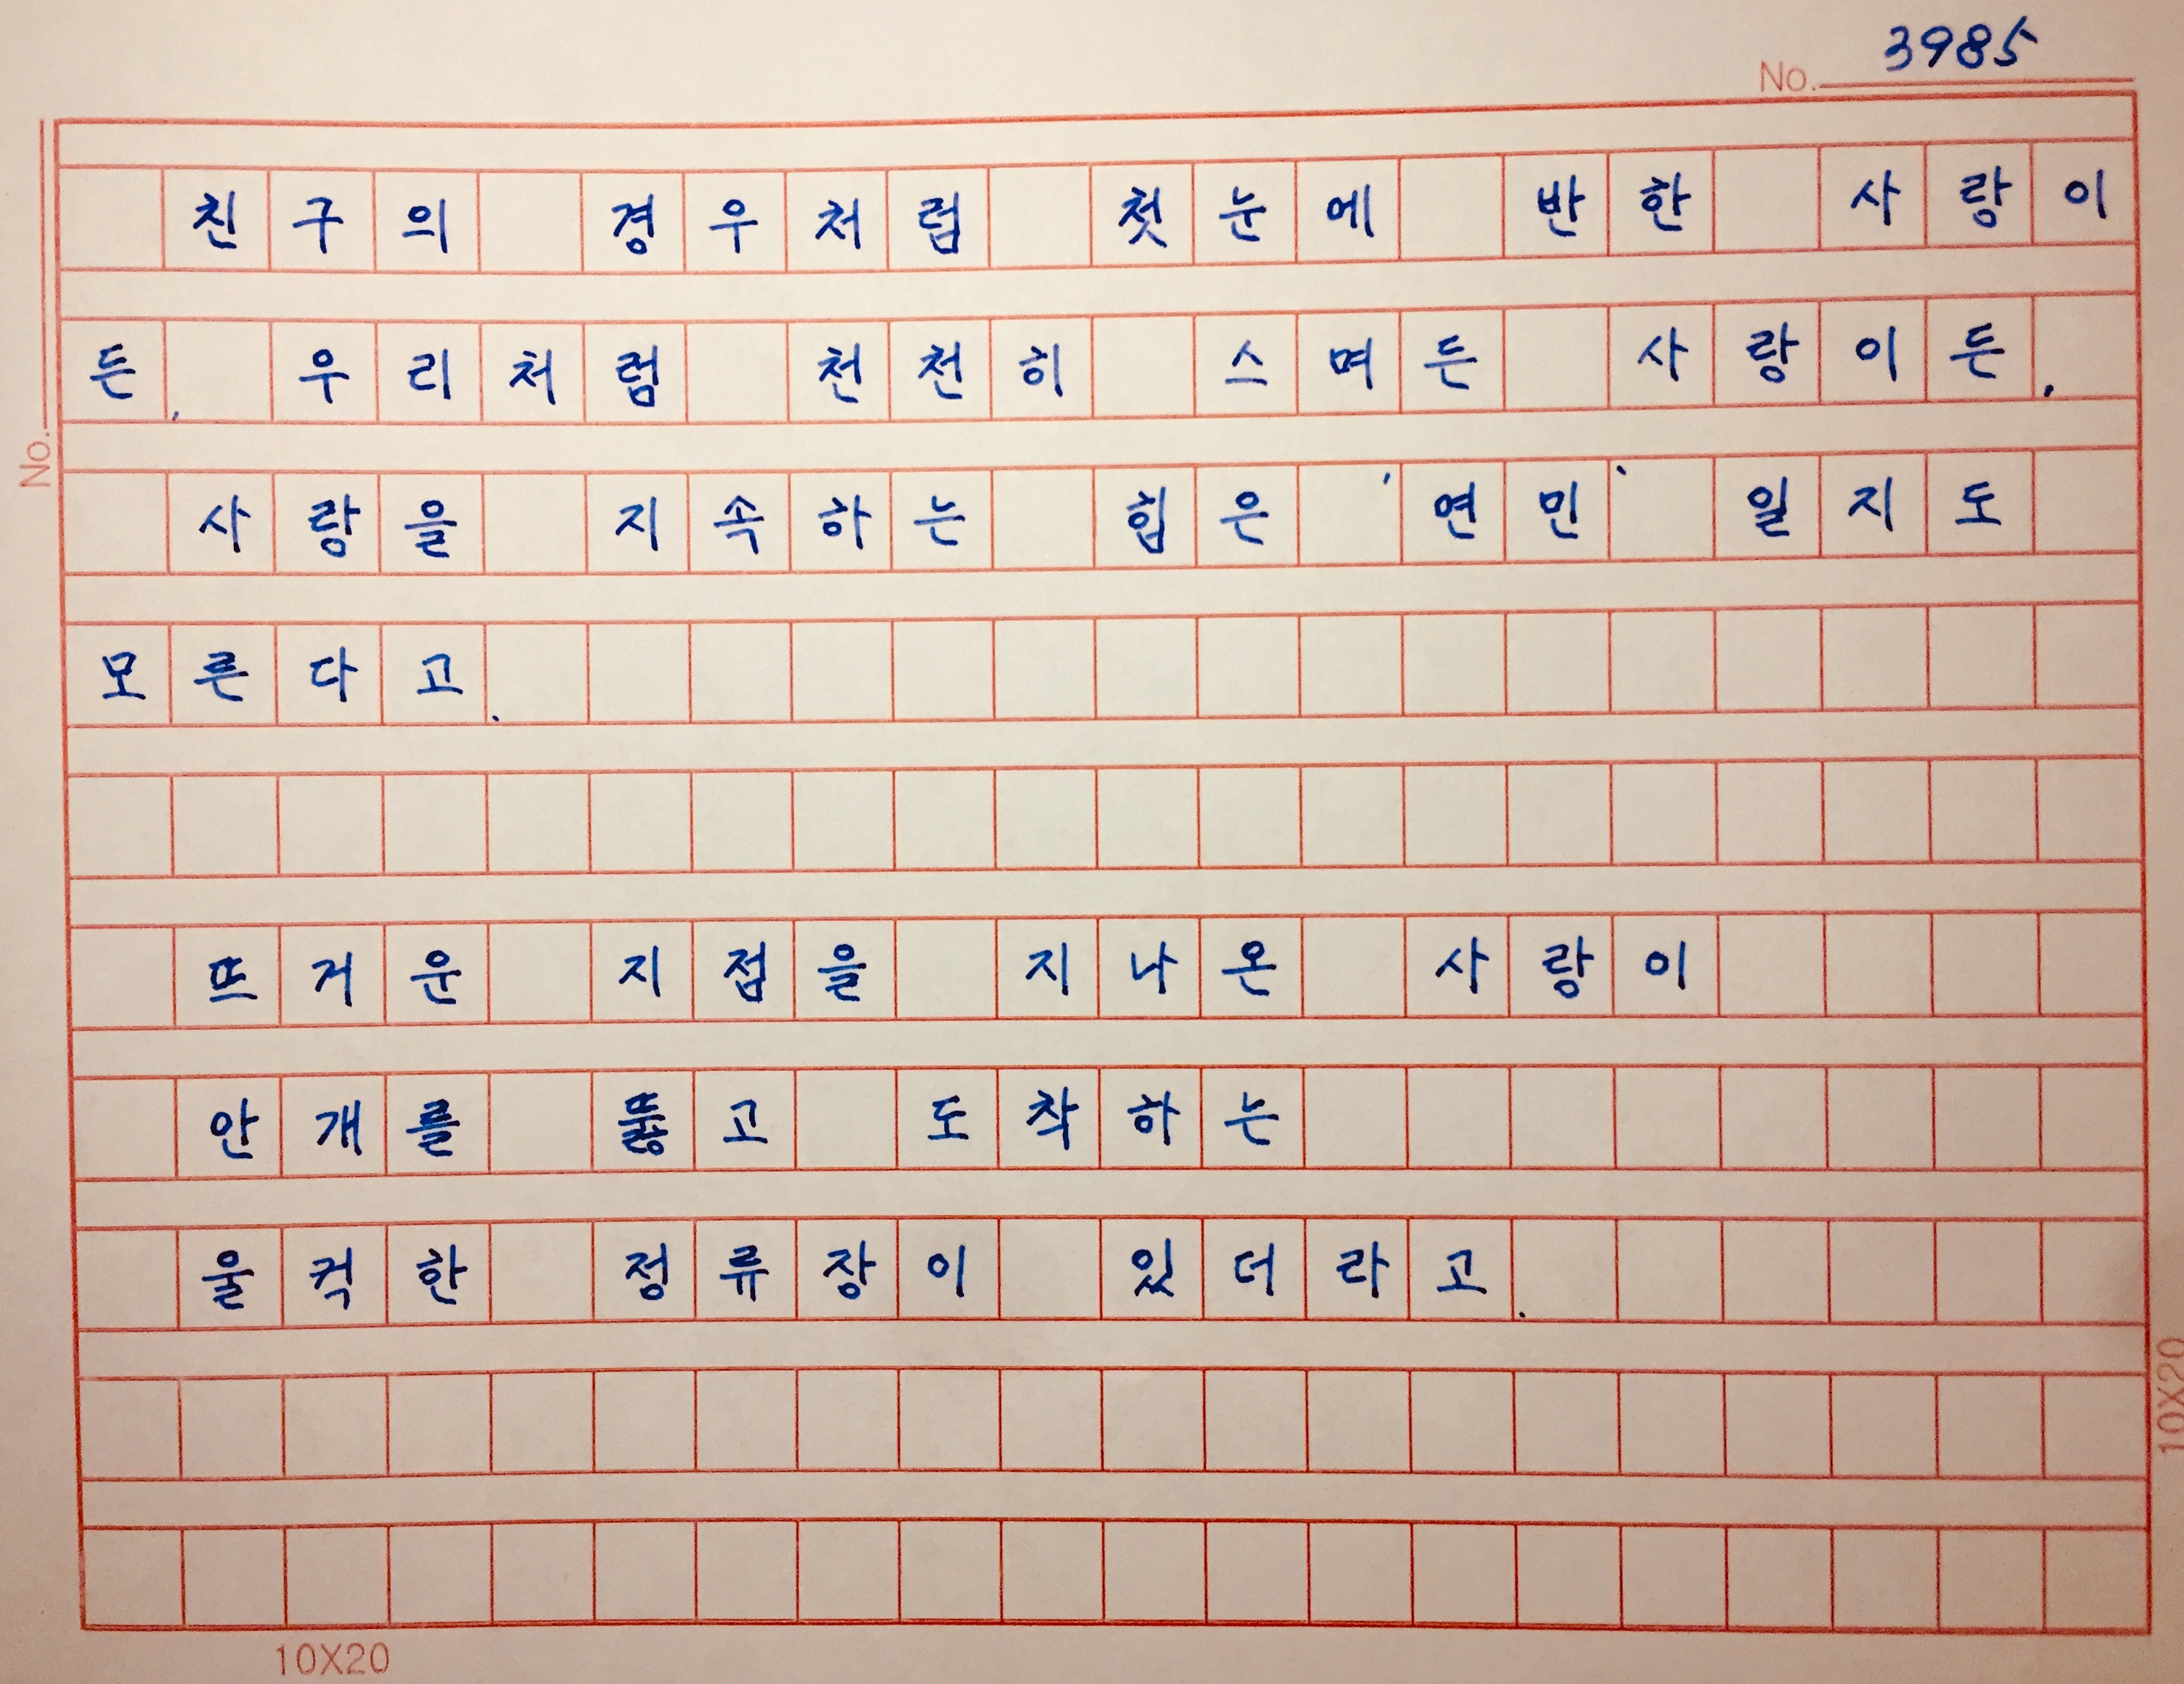 No. 3985
친구의 경우처럼 첫눈에 반한 사랑이
든, 우리처럼 천천히 스며든 사랑이든,
사랑을 지속하는 힘은 '연민' 일지도
모른다고.
뜨거운 지점을 지나온 사랑이
안개를 뚫고 도착하는
울컥한 정류장이 있더라고.
No.
10X20
10X20